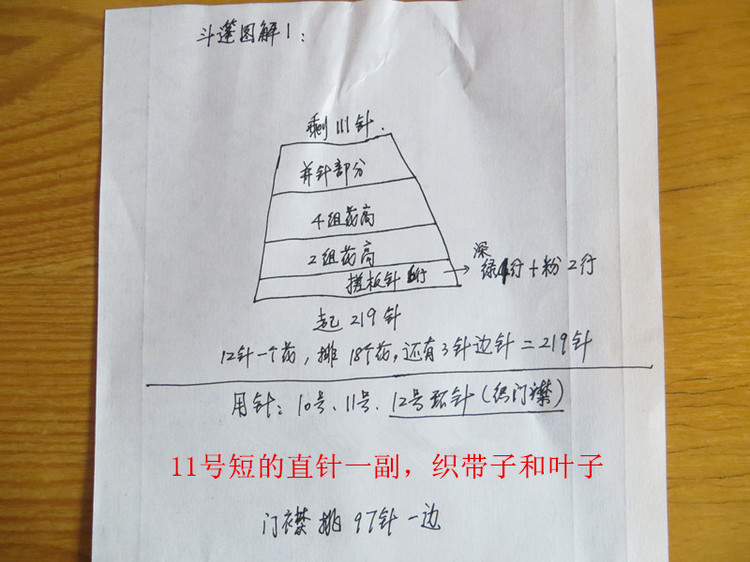 斗篷图解1：
剩111针.
并针部分
4组药高
2组药高
搓板针6行
深绿4行+粉2行
起219针
12针一个药，排18个药，还有3针边针=219针
用针：10号、11号、12号环针(织门襟)
11号短的直针一副，织带子和叶子
门襟挑97针一边